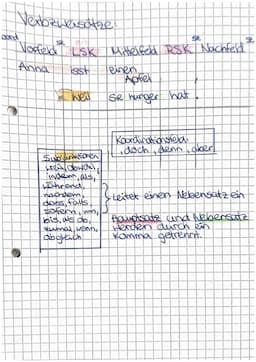 Verbzweitsätze:
Vorfeld LSK Mittelfeld RSK Nachfeld
Anna isst einen Apfel
Weil sie hunger hat.
Koordinationsfeld:
, doch, denn, aber
Subjunktoren
weil, obwohl,
indem, als,
während,
nachdem,
dass, falls,
sofern,
bis, als ob,
zumal, wenn,
obgleich
Leitet einen Nebensatz ein
Hauptsatz und Nebensatz
werden durch ein
Komma getrennt.